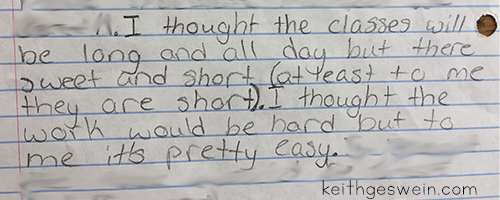 I thought the classes will
be long and all day but there
sweet and short (at least to me
they are short). I thought the
work would be hard but to
me it's pretty easy.
keithgeswein.com